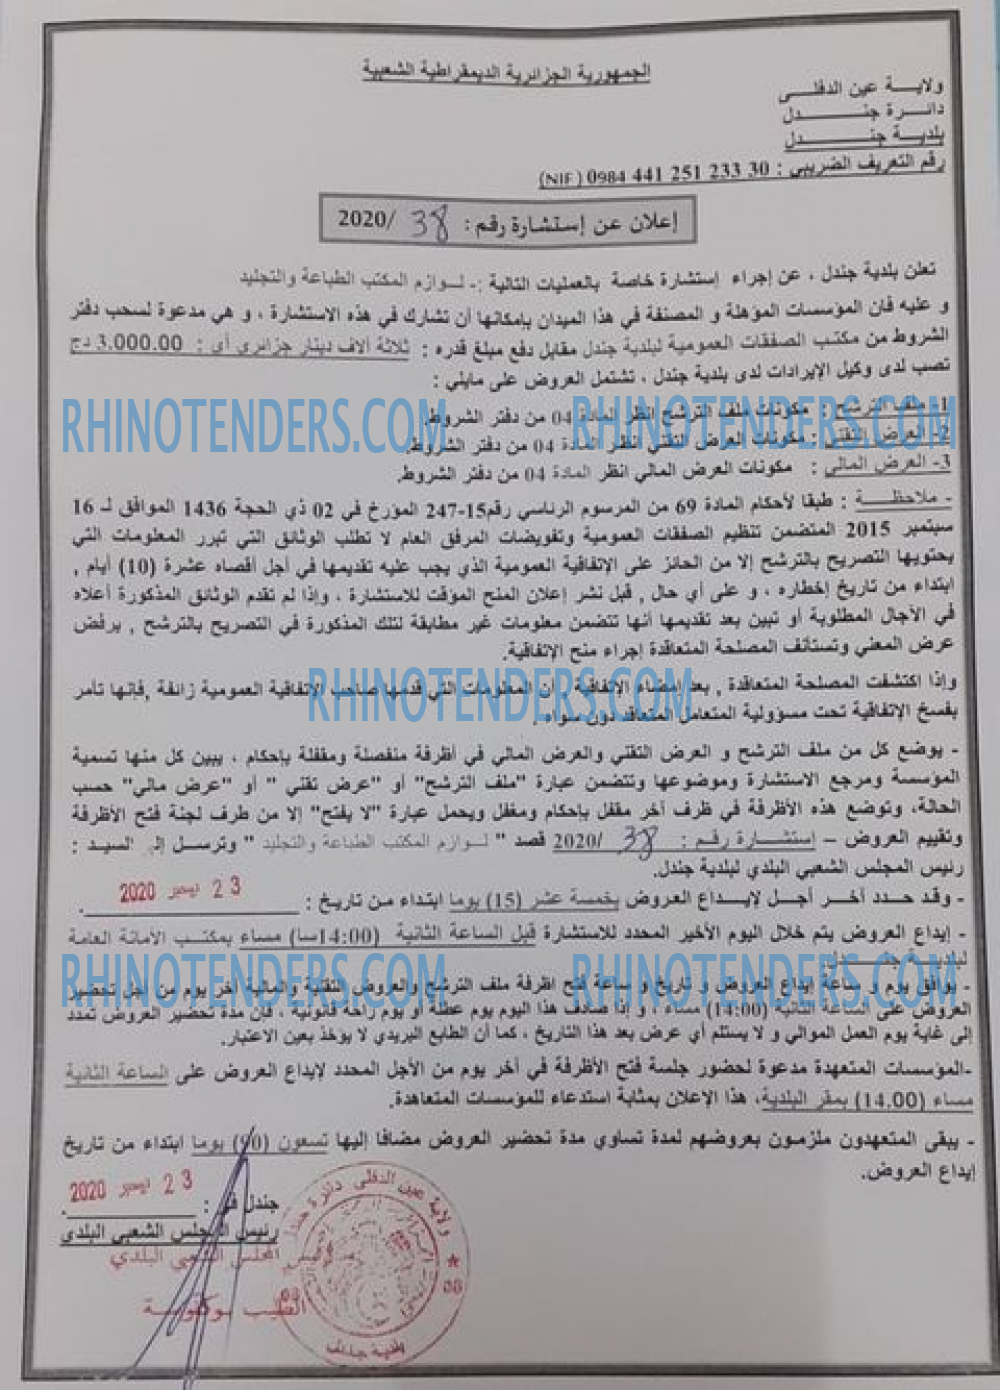 الجمهورية الجزائرية الديمقراطية الشعبية
ولايـــة عين الدفلـــى
دائـــرة جنـــــدل
بلديـــة جنـــــدل
رقم التعريف الضريبي : 30 233 251 441 0984 (NIF)
إعلان عن إستشارة رقم : 38 /2020
تعلن بلدية جندل ، عن إجراء إستشارة خاصة بالعمليات التالية :- لــوازم المكتب الطباعة والتجليد
و عليه فان المؤسسات المؤهلة و المصنفة في هذا الميدان بإمكانها أن تشارك في هذه الاستشارة ، و هي مدعوة لسحب دفتر
الشروط من مكتب الصفقات العمومية لبلدية جندل مقابل دفع مبلغ قدره : ثلاثة ألاف دينار جزائري أي : 3.000.00 دج
تصب لدى وكيل الإيرادات لدى بلدية جندل ، تشتمل العروض على مايلي :
1- ملف الترشح : مكونات ملف الترشح انظر المادة 04 من دفتر الشروط.
2- العرض التقني : مكونات العرض التقني انظر المادة 04 من دفتر الشروط.
RHINOTENDERS.COM RHINOTENDERS.COM
3- العرض المالي : مكونات العرض المالي انظر المادة 04 من دفتر الشروط.
- ملاحظـــة : طبقا لأحكام المادة 69 من المرسوم الرئاسي رقم15-247 المؤرخ في 02 ذي الحجة 1436 الموافق لـ 16
سبتمبر 2015 المتضمن تنظيم الصفقات العمومية وتفويضات المرفق العام لا تطلب الوثائق التي تبرر المعلومات التي
يحتويها التصريح بالترشح إلا من الحائز على الإتفاقية العمومية الذي يجب عليه تقديمها في أجل أقصاه عشرة (10) أيام ,
ابتداء من تاريخ إخطاره ، و على أي حال , قبل نشر إعلان المنح الموقت للاستشارة ، وإذا لم تقدم الوثائق المذكورة أعلاه
في الآجال المطلوبة أو تبين بعد تقديمها أنها تتضمن معلومات غير مطابقة لتلك المذكورة في التصريح بالترشح , يرفض
عرض المعني وتستأنف المصلحة المتعاقدة إجراء منح الإتفاقية.
وإذا اكتشفت المصلحة المتعاقدة , بعد إمضاء الاتفاقية , أن المعلومات التي قدمها صاحب الإتفاقية العمومية زائفة ,فإنها تأمر
RHINOTENDERS.COM
بفسخ الإتفاقية تحت مسؤولية المتعامل المتعاقد دون سواه .
- يوضع كل من ملف الترشح و العرض التقني والعرض المالي في أظرفة منفصلة ومقفلة بإحكام ، يبين كل منها تسمية
المؤسسة ومرجع الاستشارة وموضوعها وتتضمن عبارة "ملف الترشح" أو "عرض تقني " أو "عرض مالي" حسب
الحالة، وتوضع هذه الأظرفة في ظرف أخر مقفل بإحكام ومغفل ويحمل عبارة "لا يفتح" إلا من طرف لجنة فتح الأظرفة
وتقييم العروض – إستشارة رقم : 38 /2020 قصد " لــوازم المكتب الطباعة والتجليد " وترسل إلى السيد :
رئيس المجلس الشعبي البلدي لبلدية جندل.
- وقد حدد أخر أجل لإيداع العروض بخمسة عشر (15) يوما ابتداء من تاريخ : 23 ديسمبر 2020.
- إيداع العروض يتم خلال اليوم الأخير المحدد للاستشارة قبل الساعة الثانية (14:00سا) مساء بمكتب الأمانة العامة
لبلديـــة جنـــدل
RHINOTENDERS.COM RHINOTENDERS.COM
- يوافق يوم و ساعة إيداع العروض و تاريخ و ساعة فتح اظرفة ملف الترشح والعروض التقنية والمالية أخر يوم من اجل تحضير
العروض على الساعة الثانية (14:00) مساء ، و إذا صادف هذا اليوم يوم عطلة أو يوم راحة قانونية ، فان مدة تحضير العروض تمدد
إلى غاية يوم العمل الموالي و لا يستلم أي عرض بعد هذا التاريخ ، كما أن الطابع البريدي لا يؤخذ بعين الاعتبار.
-المؤسسات المتعهدة مدعوة لحضور جلسة فتح الأظرفة في أخر يوم من الأجل المحدد لإيداع العروض على الساعة الثانية
مساء (14.00) بمقر البلدية، هذا الإعلان بمثابة استدعاء للمؤسسات المتعاهدة.
- يبقى المتعهدون ملزمون بعروضهم لمدة تساوي مدة تحضير العروض مضافا إليها تسعون (90) يوما ابتداء من تاريخ
إيداع العروض.
جندل في : 23 ديسمبر 2020.
رئيس المجلس الشعبي البلدي
رئيس المجلس الشعبي البلدي
الطيب بوكثوسة
ولاية عين الدفلى دائرة جندل
بلدية جندل